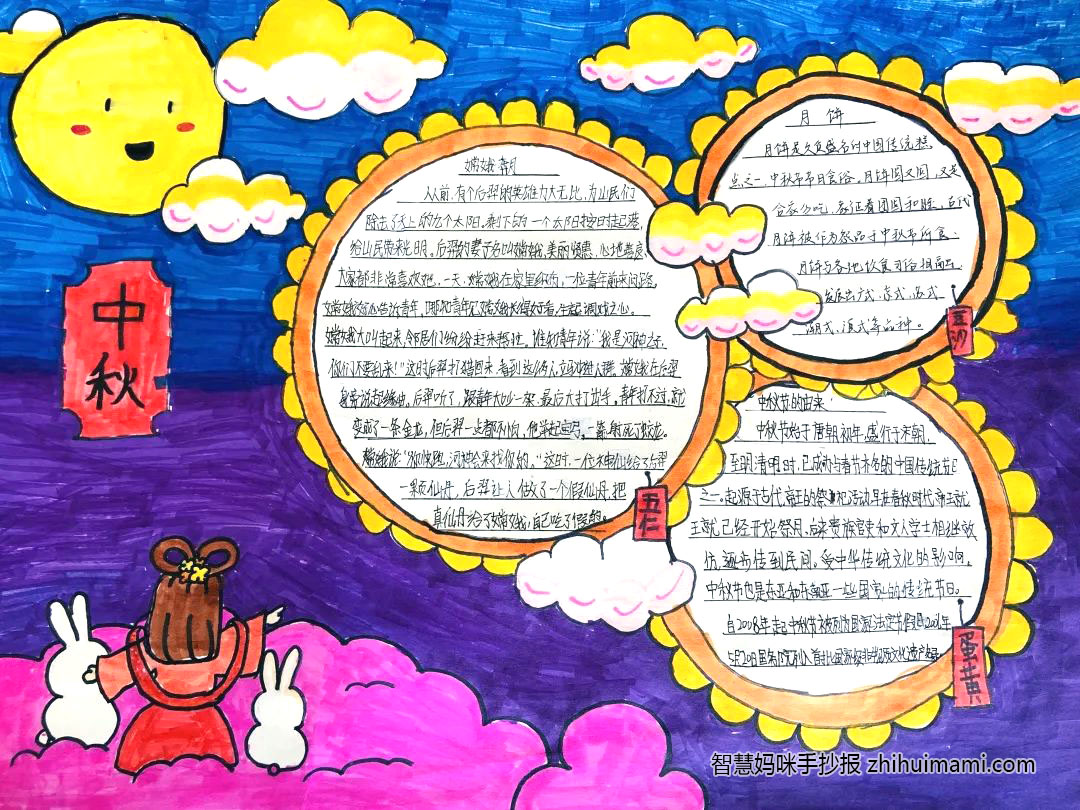 中秋
嫦娥奔月
从前,有个后羿的英雄力大无比,为山民们
除去了天上的九个太阳,剩下的一个太阳按时起落,
给山民带来光明。后羿的妻子名叫嫦娥,美丽贤惠,心地善良,
大家都非常喜欢她。一天,嫦娥在家里织布,一位青年前来问路,
嫦娥好心告诉青年,哪知青年见嫦娥长得好看,生起调戏之心。
嫦娥大叫起来,邻居们纷纷赶来帮忙。谁知青年说:"我是河神之子,
你们不要乱来!"这时后羿打猎回来,看到这么多人,立马冲进人群。嫦娥在后羿
身旁说起缘由。后羿听了,跟青年大吵一架,最后大打出手。青年打不过,就
变成了一条金龙,但后羿一点都不怕,他举起宝弓,一箭射死了蛟龙。
嫦娥说"你快跑,河神会来找你的。"这时,一位神仙给了后羿
一颗仙丹,后羿让人做了一个假仙丹,把
真仙丹给了嫦娥,自己吃了假的。
五仁
月饼
月饼是久负盛名的中国传统糕
点之一,中秋节节日食俗。月饼圆又圆,又是
合家分吃,象征着团圆和睦,古代
月饼被作为祭品于中秋节所食。
月饼与各地饮食习俗相融合
发展出广式、京式、苏式
潮式、滇式等品种。
豆沙
中秋节的由来:
中秋节始于唐朝初年,盛行于宋朝,
至明清明时,已成为与春节齐名的中国传统节日
之一。起源于古代帝王的祭祀活动早在春秋时代帝王就
王就已经开始祭月,后来贵族官吏和文人学士相继效
仿,逐步传到民间。受中华传统文化的影响,
中秋节也是东亚和东南亚一些国家的传统节日。
自2008年起中秋节被列为国家法定节假日2006年
5月20日国务院列入首批国家级非物质文化遗产名录。
蛋黄
智慧妈咪手抄报 zhihuimami.com